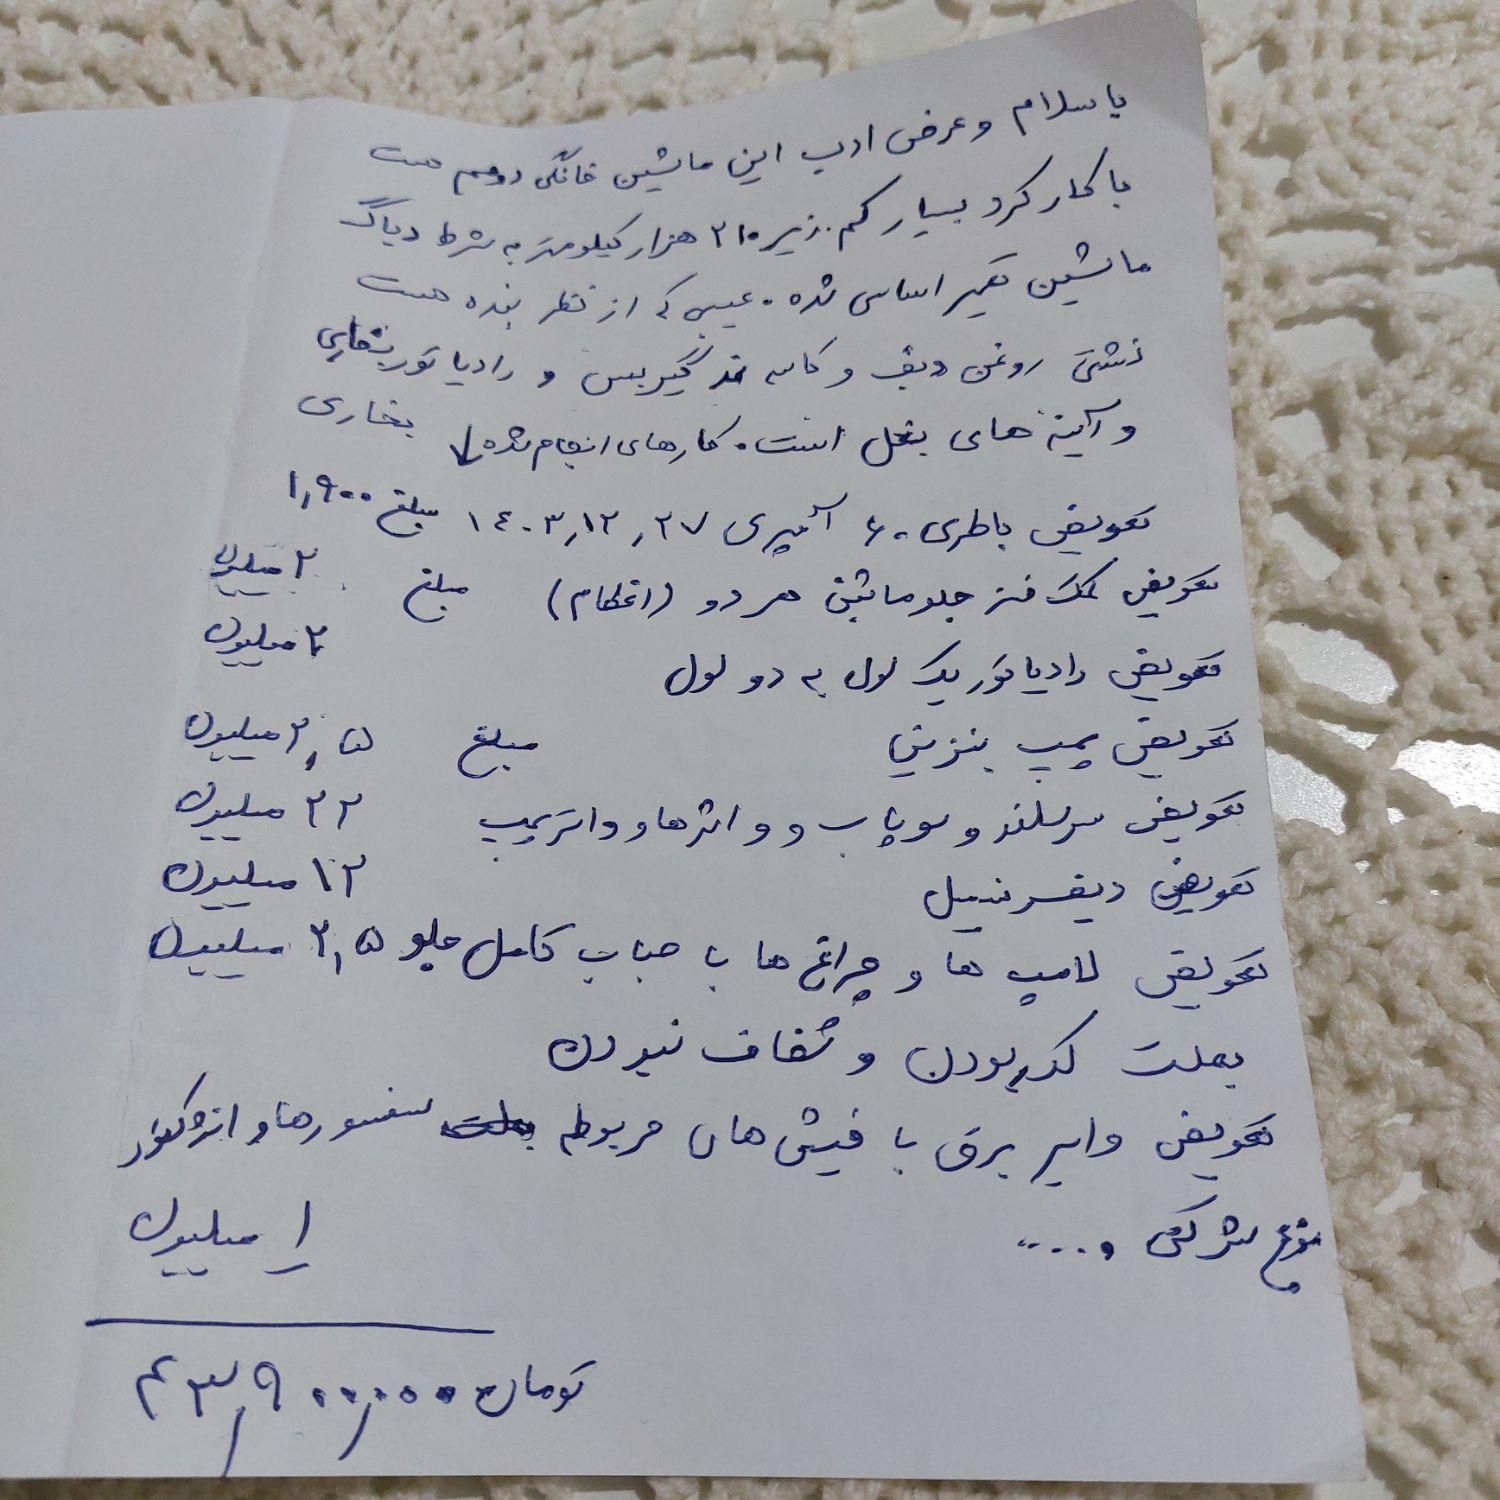 با سلام و عرض ادب این ماشین خانگی دوم هست
با کارکرد بسیار کم. زیر ۲۱۰ هزار کیلومتر به شرط دیاگ
ماشین تعمیر اساسی شده. عیبی که از نظر بنده هست
نشتی روغن دیف و کاسه نمد گیربس و رادیاتور بخاری
بخاری
و آینه های بغل است. کارهای انجام شده ↓
تعویض باطری ۶۰ آمپری ۱۴۰۳,۱۲,۲۷ مبلغ ۱,۹۰۰
تعویض کمک فنر جلو ماشین هر دو (اعظام) مبلغ ۲ میلیون
تعویض رادیاتور یک لول به دو لول ۲ میلیون
تعویض پمپ بنزین مبلغ ۲,۵ میلیون
تعویض سرسلندو سوپاپ و واشرها و واترپمپ ۲۲ میلیون
تعویض دیفرنسیل ۱۲ میلیون
تعویض لامپ ها و چراغ ها با حباب کامل جلو ۲,۵ میلیون
بعلت کدر بودن و شفاف نبودن
تعویض وایر برق با فیش های مربوطه سنسورها و انژکتور
نوع شرکتی و....
۱ میلیون
۴۳,۹۰۰,۰۰۰ تومان